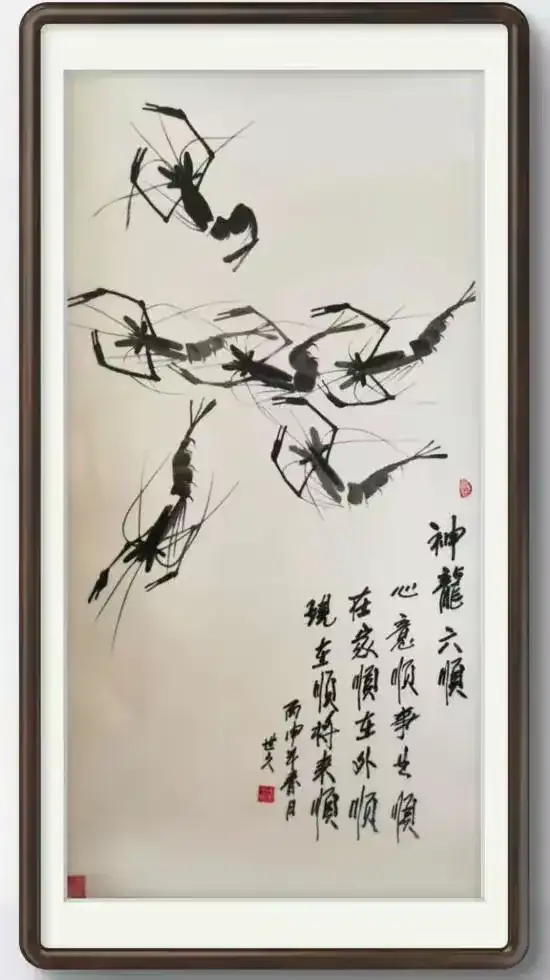 神龍六順
心意順事业順
在家順在外順
現在順将来順
丙申年春月
世久